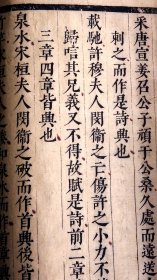 采唐宣姜召公子頑于公桑久處而遠送
刺之而作是詩興也
載馳許穆夫人閔衛之亡傷許之小力不
歸唁其兄義又不得故賦是詩前二章
三章四章皆興也
泉水宋桓夫人閔衛之破而作首興後皆
泉水而作首章興